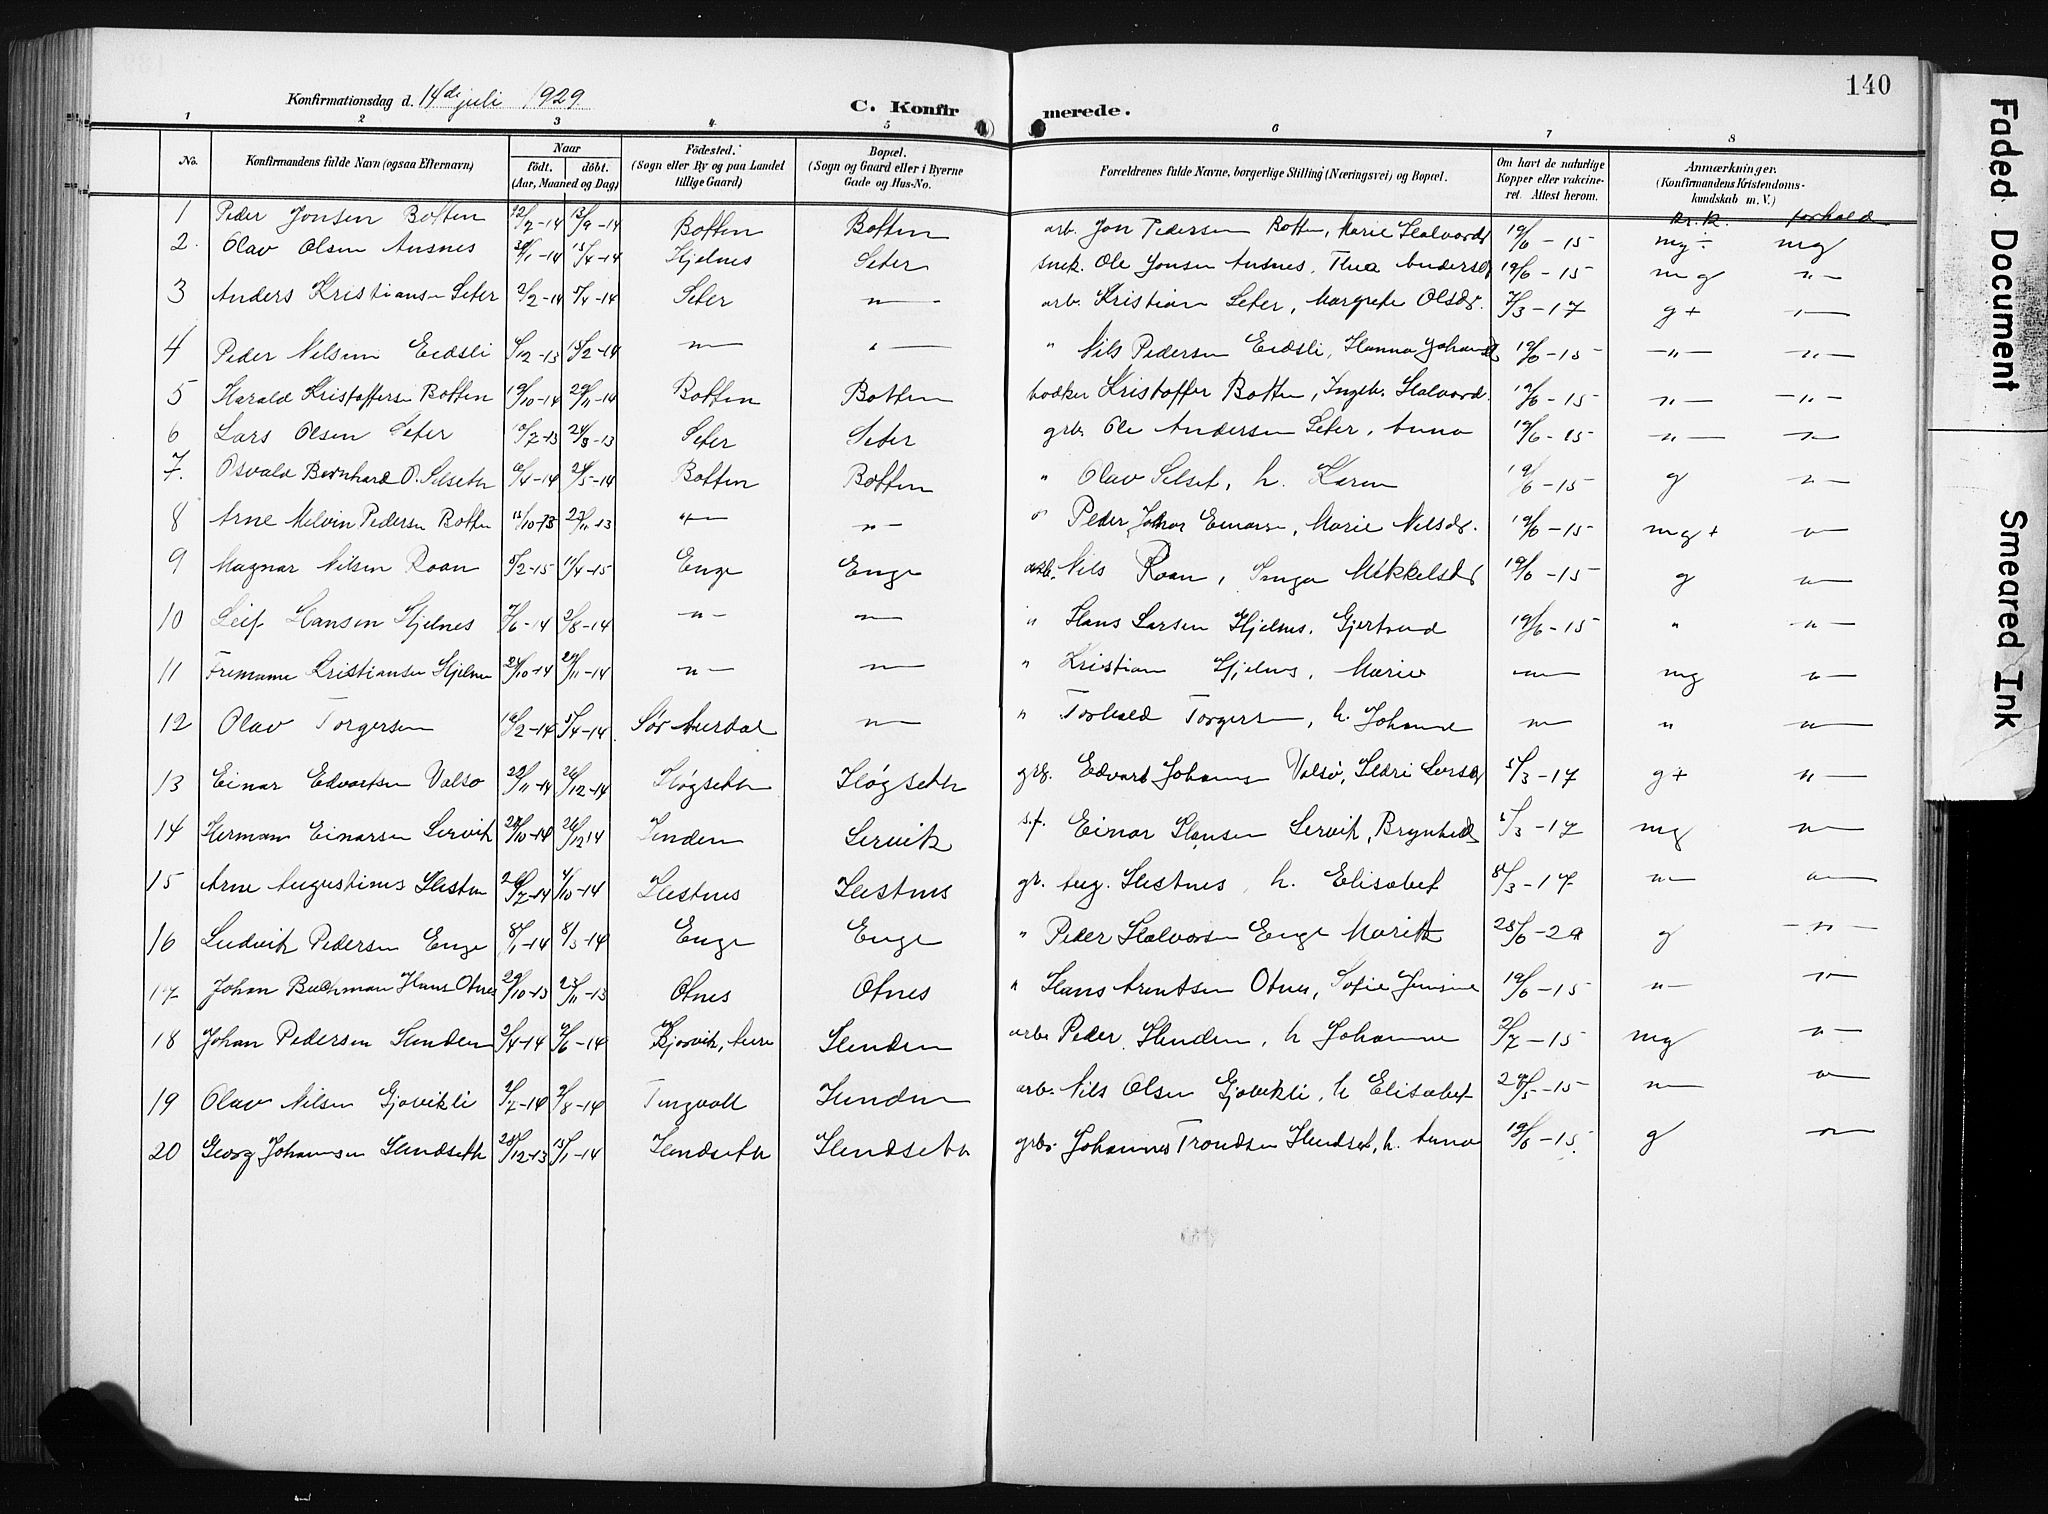 140
Konfirmationsdag d. 14de juli 1929
C. Konfirmerede.
1 2 3 4 5 6 7 8
No. Konfirmandens fulde Navn (ogsaa Efternavn) Naar født. døbt. (Aar, Maaned og Dag) Födested. (Sogn eller By og paa Landet tillige Gaard) Bopæl. (Sogn og Gaard eller i Byerne Gade og Hus-No. Forældrenes fulde Navne, borgerlige Stilling (Næringsvei) og Bopæl. Om havt de naturlige Kopper eller vakcineret. Attest herom. Anmærkninger. (Konfirmandens Kristendomskundskab m. V.)
Kr. k. forhold
1 Peder Jonsen Botten 12/7-14 13/9-14 Botten Botten arb. Jon Pedersen Botten, Marie Halvorsd 19/6-15 mg÷ mg
2 Olav Olsen Ausnes 15/4-14 Hjelnes Seter snek. Ole Jonsen Ausnes, Thea Andersd 19/6-15 mg "-
3 Anders Kristiansen Seter 2/2-14 5/4-14 Seter "- arb. Kristian Seter, Margrete Olsdr. 7/3-17 g+ "-
4 Peder Nilsen Eidsli 15/2-14 "- "- " Nils Pedersen Eidsli, Hanna Johansd 19/6-15 "- "-
5 Harald Kristoffersen Botten 19/10-14 29/11-14 Botten Botten bødker Kristoffer Botten, Ingeb. Halvord. 19/6-15 "- "-
6 Lars Olsen Seter 24/3-13 Seter Seter grb. Ole Andersen Seter, Anna 19/6-15 "- "-
7. Osvald Bernhard O. Selseth 21/5-14 Botten Botten " Olav Selset, h. Karen 19/6-15 g "-
8 Arne Melvin Pedersen Botten 15/10-13 23/11-13 "- "- " Peder Johan Einarsen, Marie Nilsdr. 19/6-15 mg+ "-
9 Magnar Nilsen Roan 5/2-15 11/4-15 Enge Enge arb. Nils Roan, Inga Mikkelsdr 19/6-15 g "-
10 Leif Hansen Hjelnes 7/6-14 2/8-14 "- "- " Hans Larsen Hjelnes, Gjertrud 19/6-15 " "-
11 Fremann Kristiansen Hjelnes 24/10-14 29/11-14 "- "- " Kristian Hjelnes, Marie "- mg "-
12 Olav Torgersen 16/2-14 5/4-14 Sør Aurdal "- " Torvald Torgersen, h. Johanne "- " "-
13 Einar Edvartsen Valsø 22/11-14 26/12-14 Høgseth Høgseth grb. Edvart Johansen Valsø, Sedri Larsd 5/3-17 g+ "-
14 Herman Einarsen Servik 28/10-14 26/12 14 Henden Servik s.f. Einar Hansen Servik, Brynhild 5/3-17 mg "-
15 Arne Augustinus Hestnes 26/7-14 4/10-14 Hestnes Hestnes gr. Aug. Hestnes, h. Elisabet 8/3-17 "- "-
16 Ludvik Pedersen Enge 8/1-14 8/3-14 Enge Enge " Peder Halvorsen Enge Marit 28/6-29 g "-
17 Johan Buchman Hans Otnes 29/10-13 23/11-13 Otnes Otnes " Hans Arentsen Otnes, Sofie Jensine 19/6-15 "- "-
18 Johan Pedersen Henden 2/4-14 Bjørvik, Aure Henden arb. Peder Henden, h Johanne 2/7-15 mg "-
19 Olav Nilsen Gjøvikli 2/7-14 2/8-14 Tingvoll Henden arb. Nils Olsen Gjøvikli, h Elisabet "- "-
20 Georg Johansen Hendseth 28/12-13 Hendseth Hendseth grb. Johannes Trondsen Hendset, h. Anna 19/6-15. g "-
Faded Document
Smeared Ink